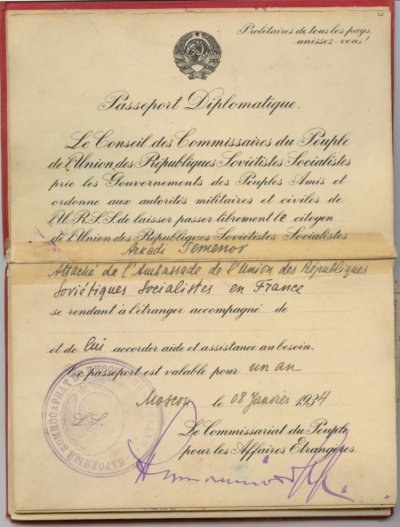 3
Prolétaires de tous les pays,
unissez-vous!
Passeport Diplomatique.
Le Conseil des Commissaires du Peuple
de l'Union des Républiques Soviétistes Socialistes
prie les Gouvernements des Peuples Amis et
ordonne aux autorités militaires et civiles de
l'U.R.S.S. de laisser passer librement le citoyen
de l'Union des Républiques Soviétistes Socialistes
Arkadi
Attaché de l'Ambassade de l'Union des Républiques
Soviétiques Socialistes en France
se rendant à l'étranger accompagné de
et de lui accorder aide et assistance au besoin.
Ce passeport est valable pour un an
Moscou le 08 Janvier 1934
L.S.
НАРОДНЫЙ КОМИССАРИАТ
Le Commissariat du Peuple
pour les Affaires Etrangères.